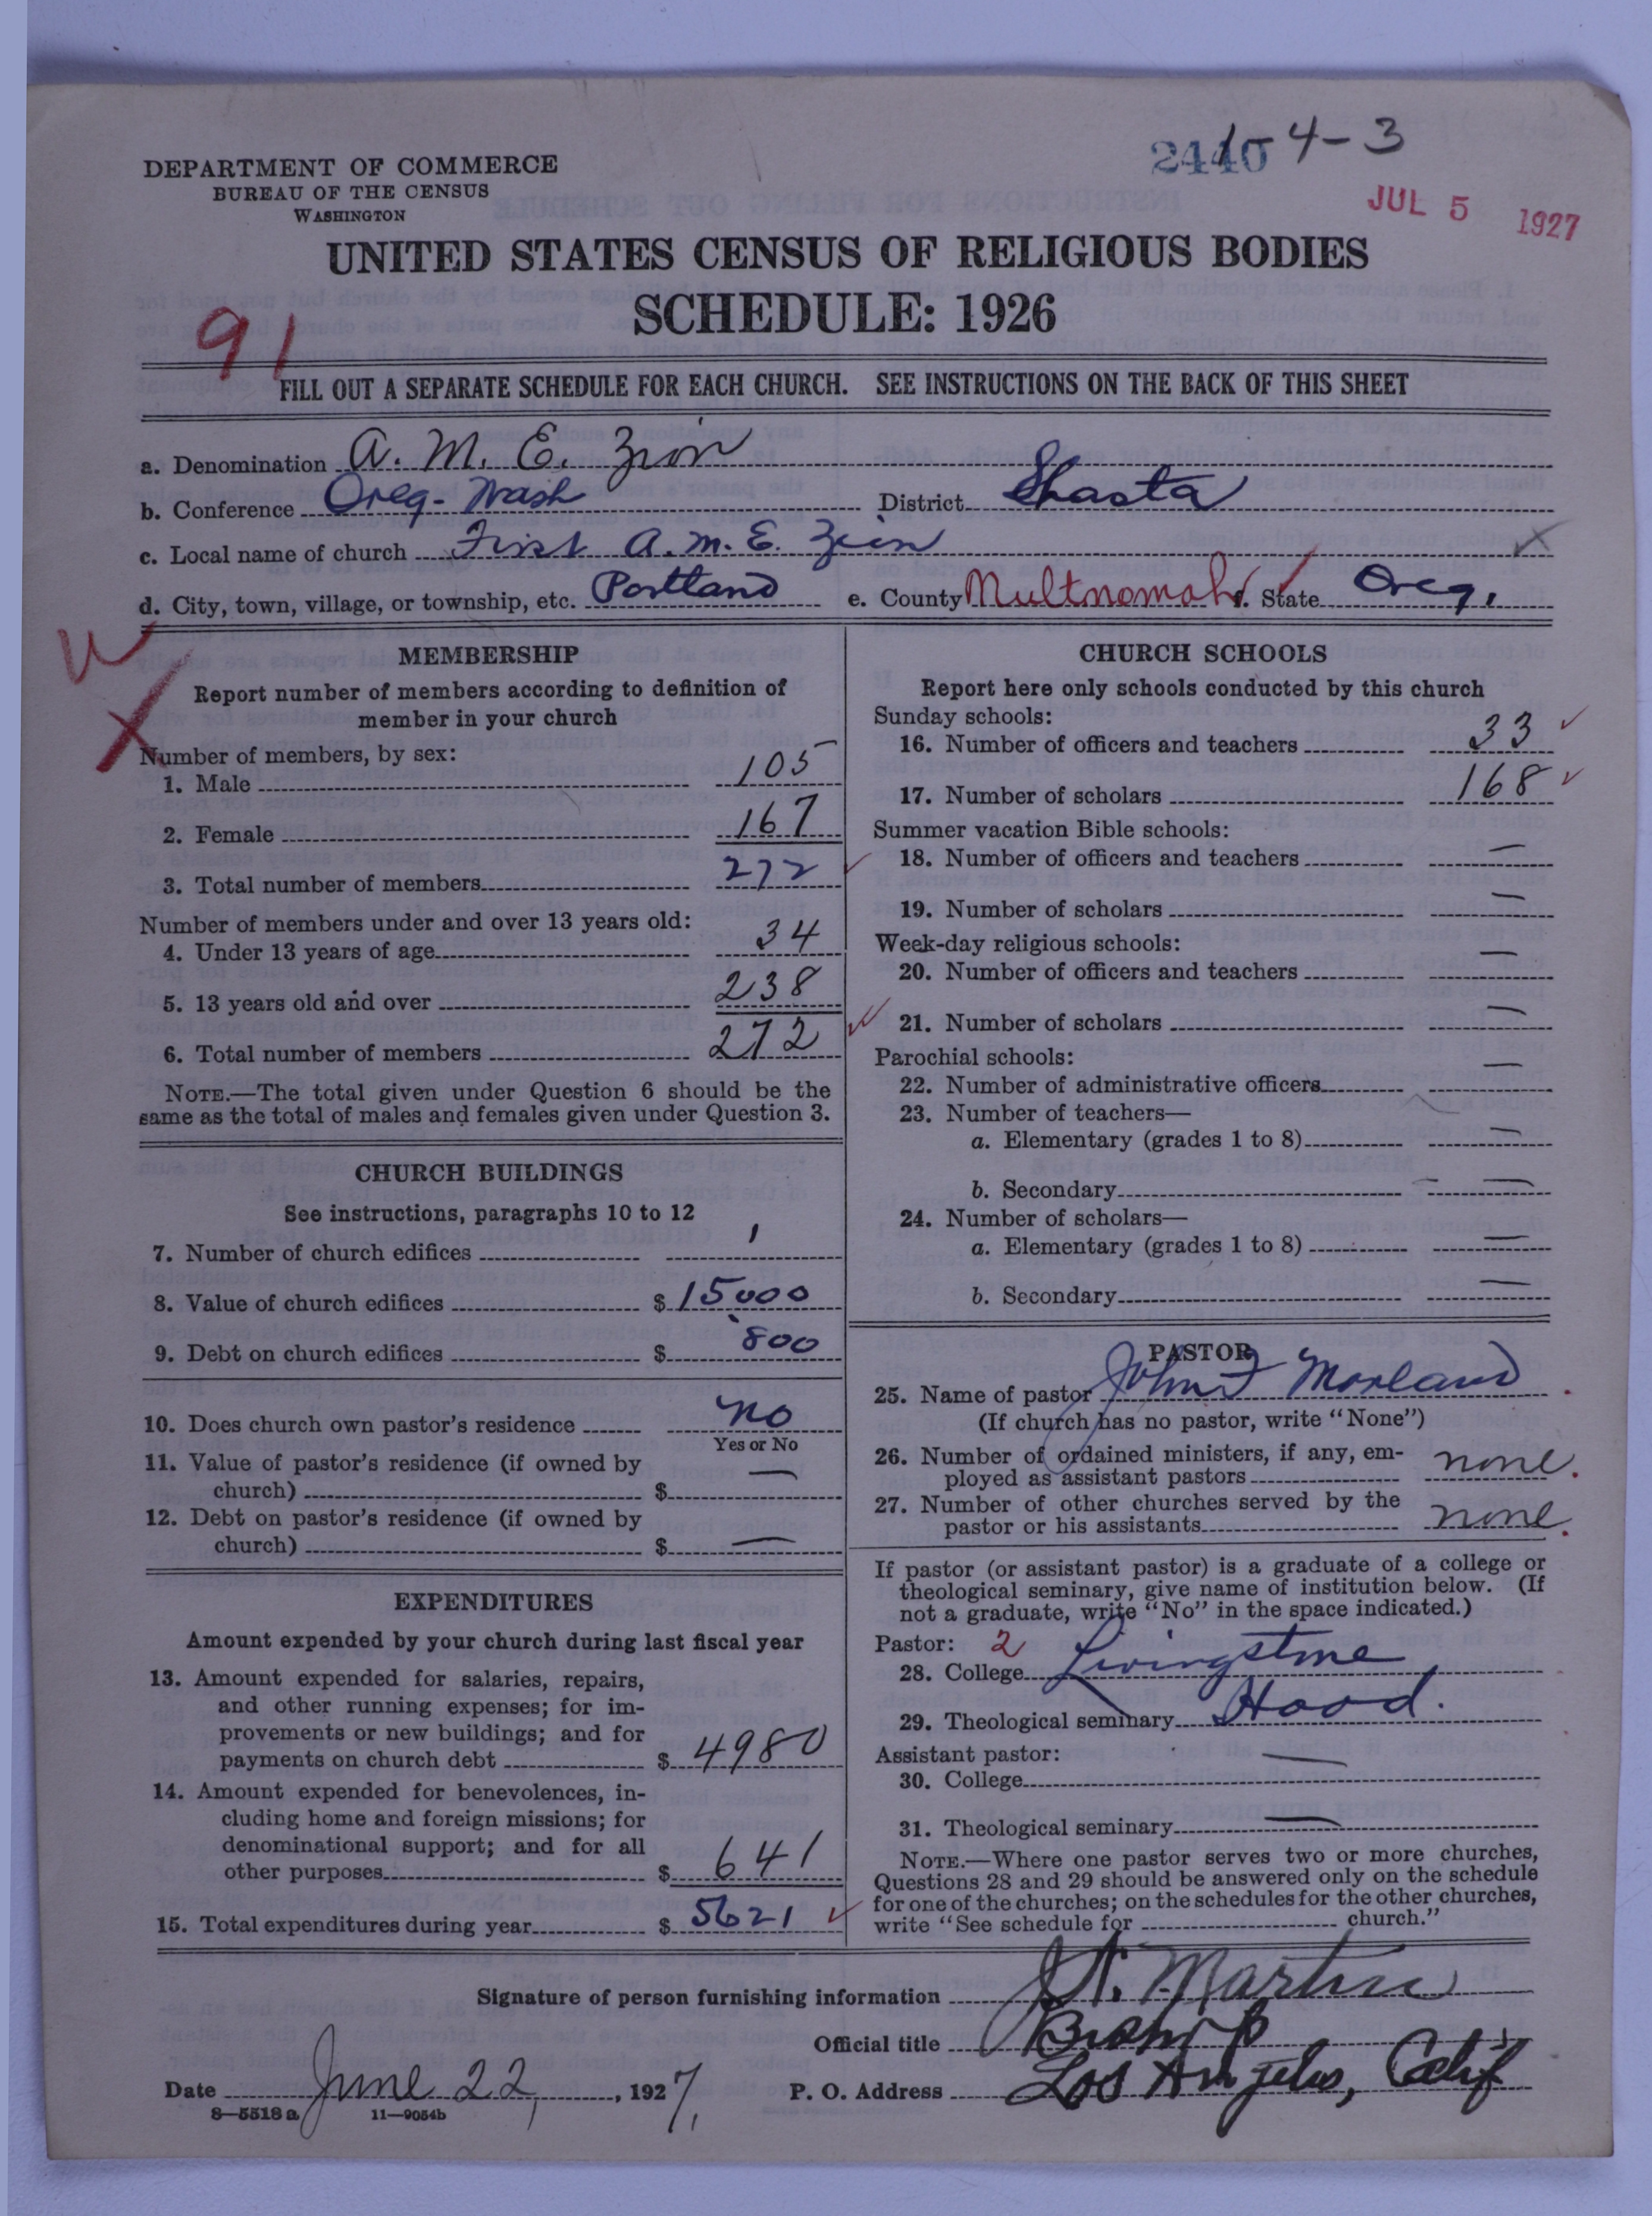 2440 1-4-3
JUL 5 1927
DEPARTMENT OF COMMERCE
BUREAU OF THE CENSUS
WASHINGTON
UNITED STATES CENSUS OF RELIGIOUS BODIES
SCHEDULE: 1926
91
FILL OUT A SEPARATE SCHEDULE FOR EACH CHURCH. SEE INSTRUCTIONS ON THE BACK OF THIS SHEET
a. Denomination A. M. E. Zion
b. Conference Oreg-Wash District Shasta
c. Local name of church First A. M. E. Zion
d. City, town, village, or township, etc. Portland e. County Multnomah f. State Oreg.
MEMBERSHIP
Report number of members according to definition of
member in your church
Number of members, by sex:
1. Male 105
2. Female 167
3. Total number of members 272
Number of members under and over 13 years old:
4. Under 13 years of age 34
5. 13 years old and over 238
6. Total number of members 272
NOTE.—The total given under Question 6 should be the
same as the total of males and females given under Question 3.
CHURCH BUILDINGS
See instructions, paragraphs 10 to 12
7. Number of church edifices 1
8. Value of church edifices $ 15000
9. Debt on church edifices $ 800
10. Does church own pastor's residence No
Yes or No
11. Value of pastor's residence (if owned by
church) $ —
12. Debt on pastor's residence (if owned by
church) $ —
EXPENDITURES
Amount expended by your church during last fiscal year
13. Amount expended for salaries, repairs,
and other running expenses; for im-
provements or new buildings; and for
payments on church debt $ 4980
14. Amount expended for benevolences, in-
cluding home and foreign missions; for
denominational support; and for all
other purposes $ 641
15. Total expenditures during year $ 5621
CHURCH SCHOOLS
Report here only schools conducted by this church
Sunday schools:
16. Number of officers and teachers 33
17. Number of scholars 168
Summer vacation Bible schools:
18. Number of officers and teachers —
19. Number of scholars —
Week-day religious schools:
20. Number of officers and teachers —
21. Number of scholars —
Parochial schools:
22. Number of administrative officers —
23. Number of teachers—
a. Elementary (grades 1 to 8) —
b. Secondary —
24. Number of scholars—
a. Elementary (grades 1 to 8) —
b. Secondary —
PASTOR
25. Name of pastor John F Moreland
(If church has no pastor, write "None")
26. Number of ordained ministers, if any, em-
ployed as assistant pastors none.
27. Number of other churches served by the
pastor or his assistants none.
If pastor (or assistant pastor) is a graduate of a college or
theological seminary, give name of institution below. (If
not a graduate, write "No" in the space indicated.)
Pastor: 2
28. College Livingstone
29. Theological seminary Hood.
Assistant pastor:
30. College —
31. Theological seminary —
NOTE.—Where one pastor serves two or more churches,
Questions 28 and 29 should be answered only on the schedule
for one of the churches; on the schedules for the other churches,
write "See schedule for church."
Signature of person furnishing information J. W. Martin
Official title Bishop
Date June 22, 1927, P. O. Address Los Angeles, Calif
8—5518 a 11—9054b